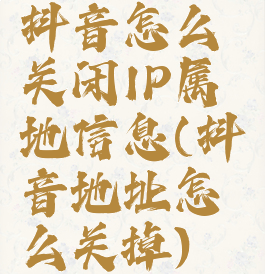 抖音怎么
关闭IP属
地信息(抖
音地址怎
么关掉)